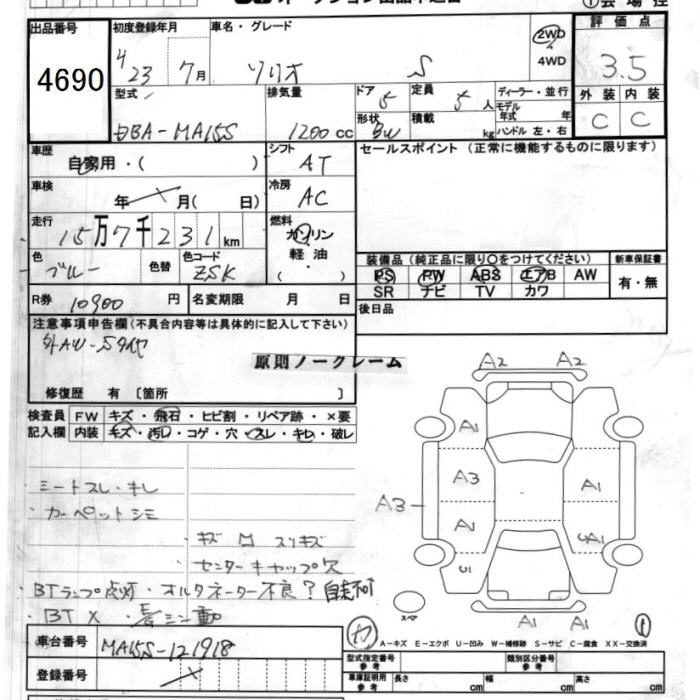 出品番号 初度登録年月 車名・グレード 2WD 評価点
4690 H23 7月 ソリオ S 4WD 3.5
型式 排気量 ドア 5 定員 5人 ディーラー・並行 外装 内装
DBA-MA15S 1200cc 形状 BW 積載 kg モデル年式 年 ハンドル 左・右 C C
車歴 自家用・( ) シフト AT セールスポイント (正常に機能するものに限ります)
車検 年 月( 日) 冷房 AC
走行 15万7千231km 燃料 ガソリン
軽油・( )
色 ブルー 色替 色コード ZSK
装備品(純正品に限り○をつけてください) 新車保証書
PS PW ABS エアB AW 有・無
SR ナビ TV カワ
R券 10900円 名変期限 月 日 後日品
注意事項申告欄(不具合内容等は具体的に記入して下さい)
原則ノークレーム
修復歴 有 [箇所 ]
A2 A2
検査員 FW キズ・飛石・ヒビ割・リペア跡・×要
記入欄 内装 キズ・汚レ・コゲ・穴・スレ・キレ・破レ
A1
A3 A1
A3
A1 A1
シートスレ・キレ
・カーペットシミ
・キズ 凹 スリキズ
・センターキャップ欠
BTランプ点灯・オルタネーター不良? 自走不可
・BT×
スペア
A1 A1
A-キズ E-エクボ U-凹み W-補修跡 S-サビ C-腐食 XX-交換済
車台番号 MA15S-121918
登録番号
型式指定番号 参考 類別区分番号 参考
車庫証明用 参考 長さ cm 幅 cm 高さ cm